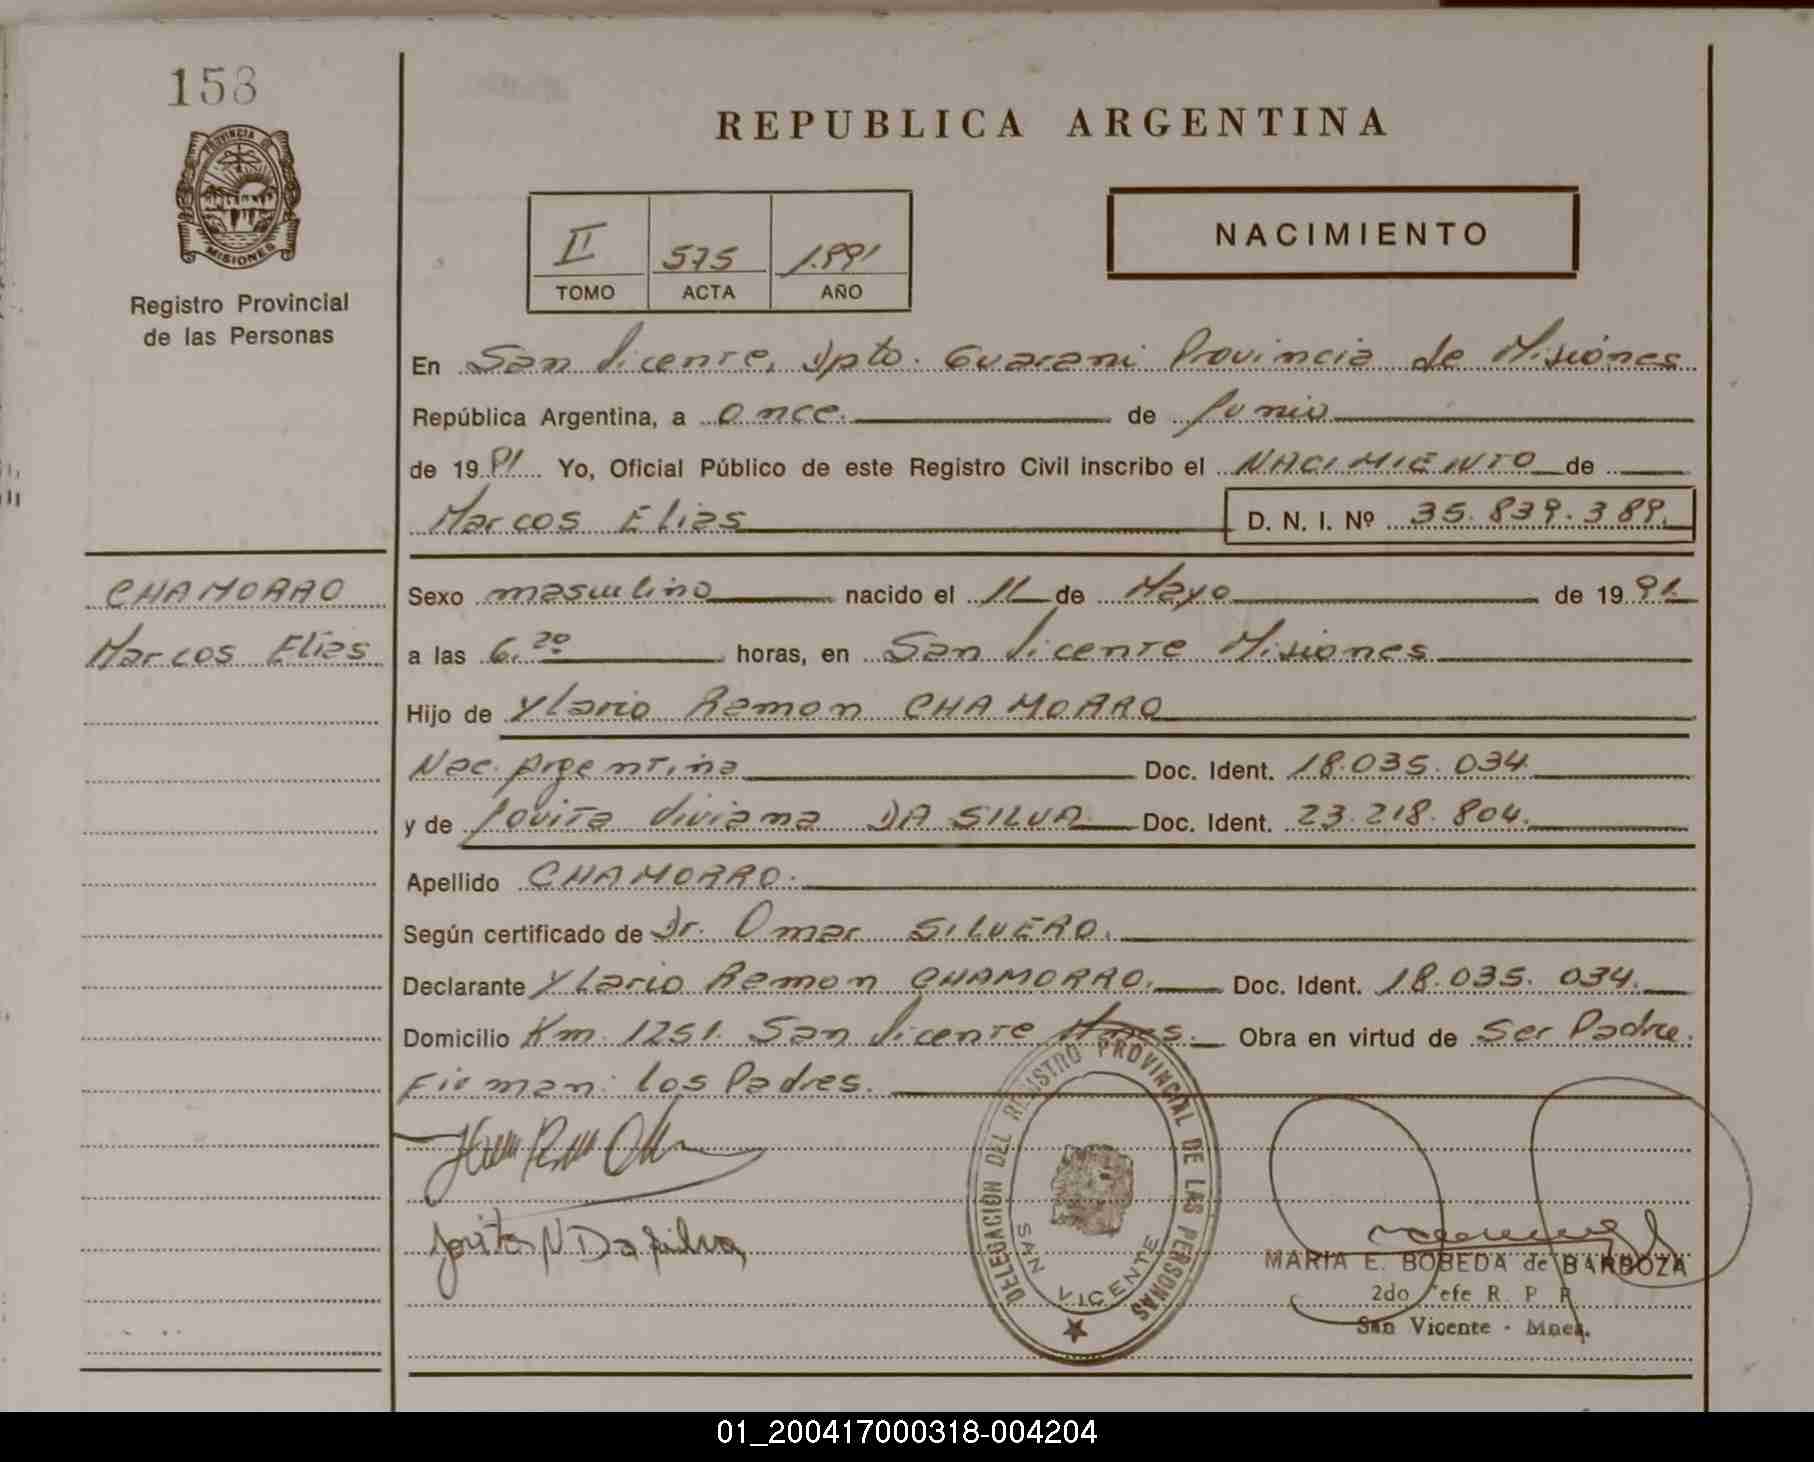 153
PROVINCIA
MISIONES
Registro Provincial
de las Personas
REPUBLICA ARGENTINA
II 575 1.991
TOMO ACTA AÑO
NACIMIENTO
En San Vicente, Dpto. Guarani Provincia de Misiones
República Argentina, a once. de Junio
de 19 91 Yo, Oficial Público de este Registro Civil inscribo el NACIMIENTO de
Marcos Elias D. N. I. Nº 35.839.389.
CHAMORRO
Marcos Elias
Sexo masculino nacido el 11 de Mayo de 19 91.
a las 6.20 horas, en San Vicente Misiones
Hijo de Ylario Ramon CHAMORRO
Nac. Argentina Doc. Ident. 18.035.034
y de Jovita Viviana DA SILVA Doc. Ident. 23.218.804.
Apellido CHAMORRO.
Según certificado de Dr. Omar SILVERO.
Declarante Ylario Ramon CHAMORRO. Doc. Ident. 18.035.034.
Domicilio Km. 1251. San Vicente Mnes. Obra en virtud de Ser Padre.
Firman: los Padres.
DELEGACION DEL REGISTRO PROVINCIAL DE LAS PERSONAS
SAN VICENTE
Jovita V Da Silva
MARIA E. BOBEDA de BARBOZA
2do Jefe R. P. P.
San Vicente - Mnes.
01_200417000318-004204